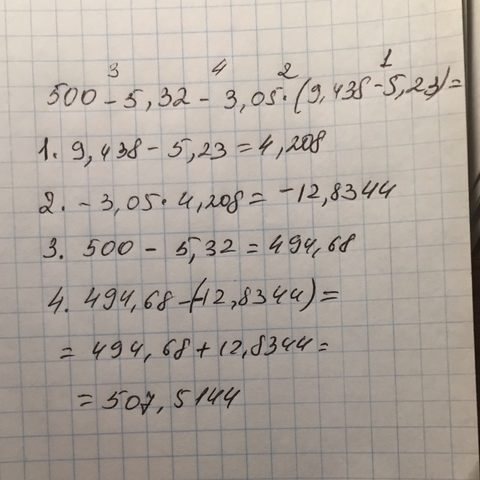 3 4 2 1
500 - 5,32 - 3,05·(9,438 - 5,23)=
1. 9,438 - 5,23 = 4,208
2. - 3,05·4,208 = -12,8344
3. 500 - 5,32 = 494,68
4. 494,68 -(-12,8344) =
= 494,68 + 12,8344 =
= 507,5144